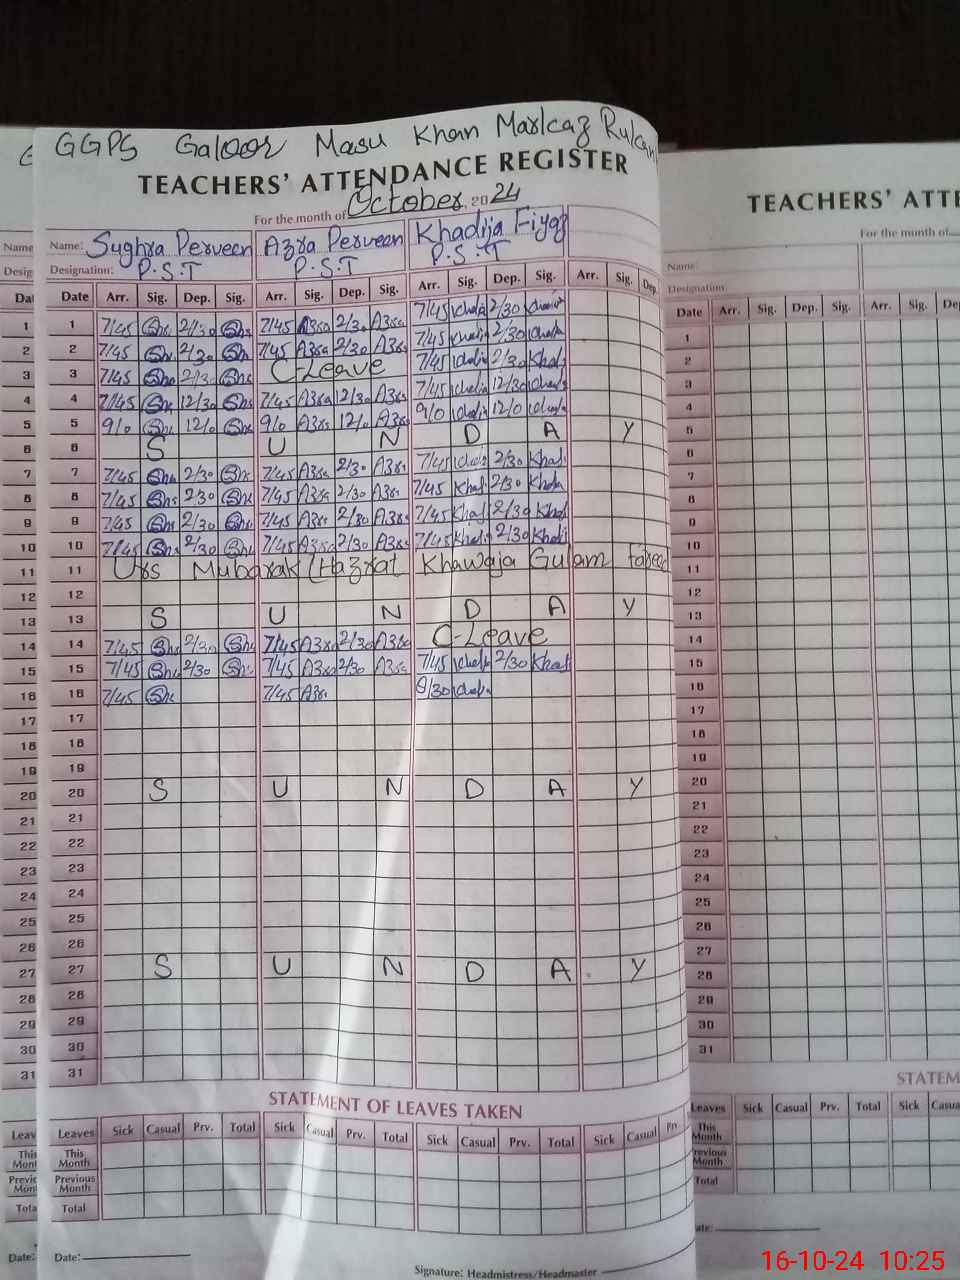 GGPS Galoor Masu Khan Marlcaz Rulcan
TEACHERS' ATTENDANCE REGISTER
For the month of October, 2024
Name: Sughra Perveen Azra Perveen Khadija Fiyaz
Designation: P.S.T P.S.T P.S.T
Date Arr. Sig. Dep. Sig. Arr. Sig. Dep. Sig. Arr. Sig. Dep. Sig. Arr. Sig. Dep.
1 7/45 2/30 7/45 Azra 2/30 Azra 7/45 2/30
2 7/45 2/30 7/45 Azra 2/30 Azra 7/45 2/30
3 7/45 2/30 C-Leave 7/45 2/30
4 7/45 12/30 7/45 Azra 12/30 Azra 7/45 12/30
5 9/0 12/0 9/0 Azra 12/0 Azra 9/0 12/0
6 S U N D A Y
7 7/45 2/30 7/45 Azra 2/30 Azra 7/45 2/30
8 7/45 2/30 7/45 Azra 2/30 Azra 7/45 2/30
9 7/45 2/30 7/45 Azra 2/30 Azra 7/45 2/30
10 7/45 2/30 7/45 Azra 2/30 Azra 7/45 2/30
11 Urs Mubarak (Hazrat Khawaja Gulam Fareed
12
13 S U N D A Y
14 7/45 2/30 7/45 Azra 2/30 Azra C-Leave
15 7/45 2/30 7/45 Azra 2/30 Azra 7/45 2/30
16 7/45 7/45 Azra 9/30
17
18
19
20 S U N D A Y
21
22
23
24
25
26
27 S U N D A Y
28
29
30
31
STATEMENT OF LEAVES TAKEN
Leaves Sick Casual Prv. Total Sick Casual Prv. Total Sick Casual Prv. Total Sick Casual Prv.
This Month
Previous Month
Total
Date:
Signature: Headmistress/Headmaster
TEACHERS' ATTE
For the month of
Name:
Designation:
Date Arr. Sig. Dep. Sig. Arr. Sig. De
1
2
3
4
5
6
7
8
9
10
11
12
13
14
15
16
17
18
19
20
21
22
23
24
25
26
27
28
29
30
31
STATEM
Leaves Sick Casual Prv. Total Sick Casua
This Month
revious Month
Total
ate:
16-10-24 10:25